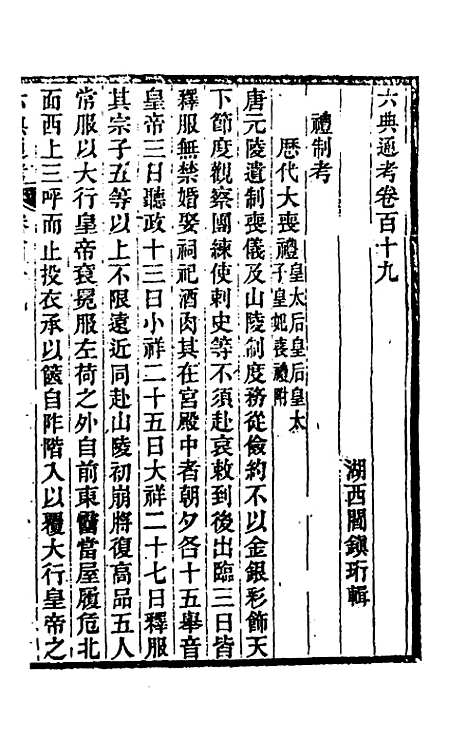 六典通考卷百十九
湖西閻鎮珩輯
禮制考
歷代大喪禮皇太后皇后皇太子皇妃喪禮附
唐元陵遺制喪儀及山陵制度務從儉約不以金銀彩飾天
下節度觀察團練使刺史等不須赴哀敕到後出臨三日皆
釋服無禁婚娶祠祀酒肉其在宮殿中者朝夕各十五舉音
皇帝三日聽政十三日小祥二十五日大祥二十七日釋服
其宗子五等以上不限遠近同赴山陵初崩將復高品五人
常服以大行皇帝袞冕服左荷之外自前東霤當屋履危北
面西上三呼而止投衣承以篋自阼階入以覆大行皇帝之
六典通考